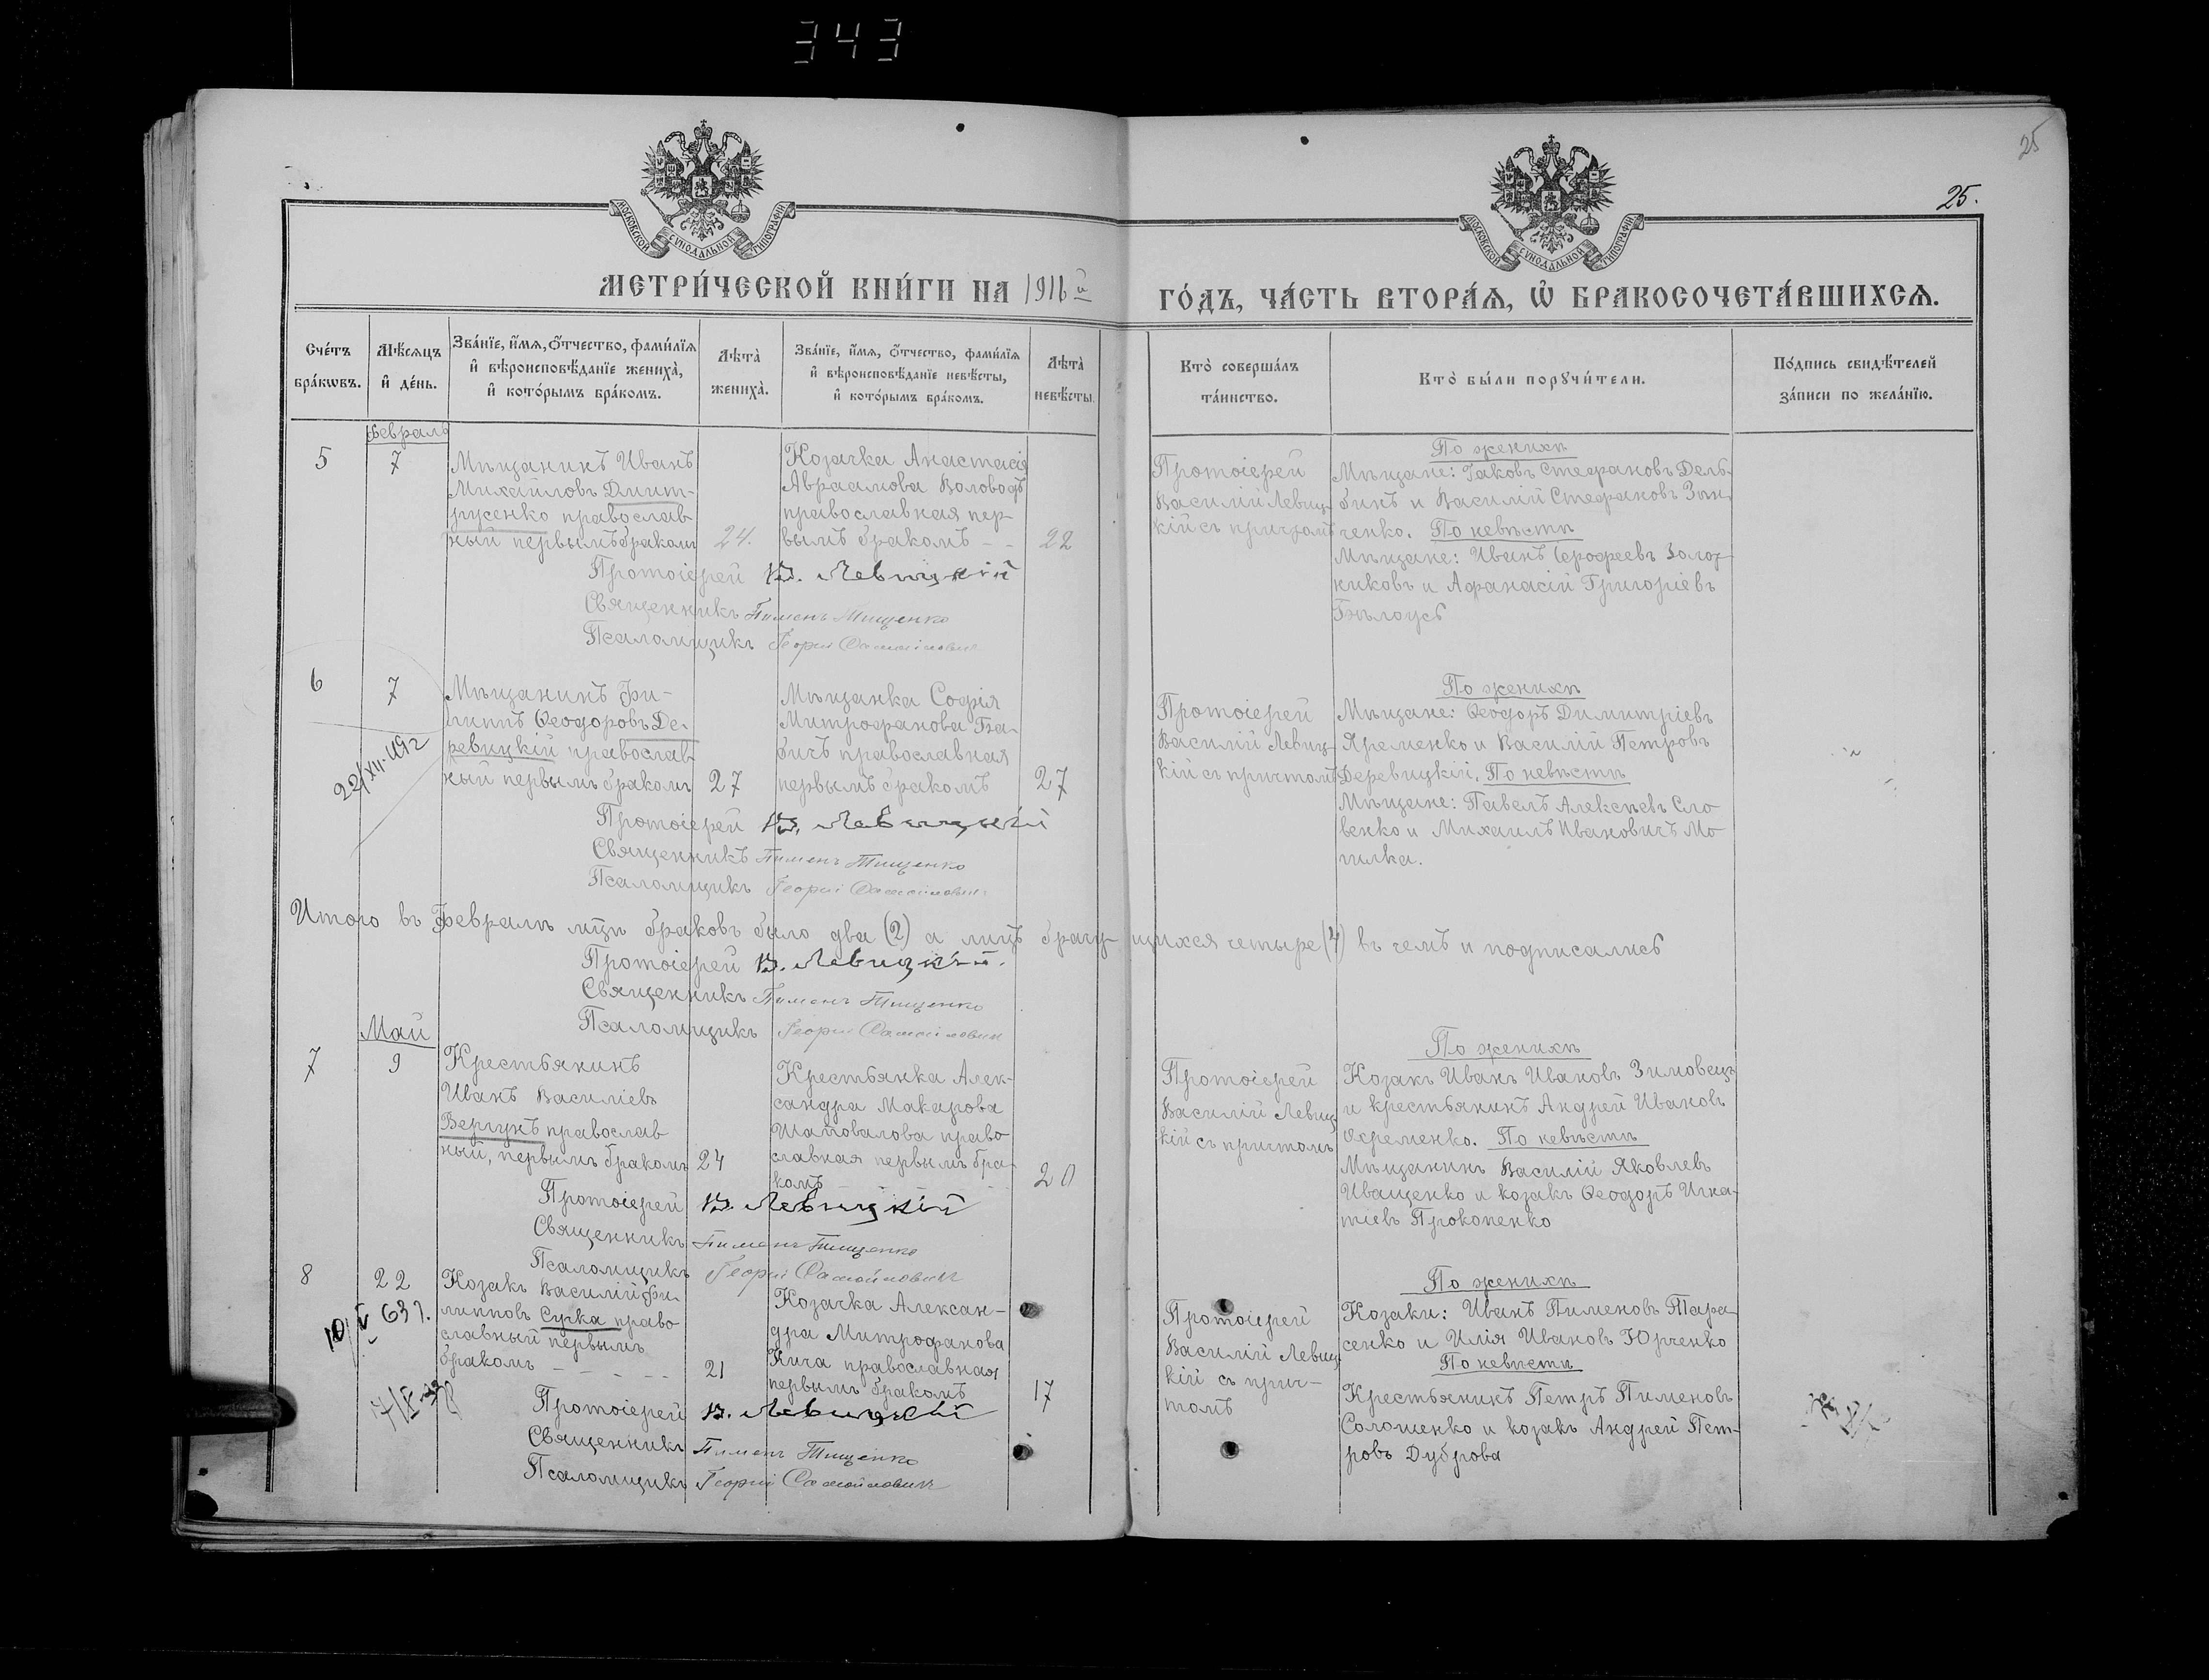 343
25
25.
МОСКОВСКОЙ СУНОДАЛЬНОЙ ТИПОГРАФІИ
МОСКОВСКОЙ СУНОДАЛЬНОЙ ТИПОГРАФІИ
МЕТРИ́ЧЕСКОЙ КНИ́ГИ НА 1916й ГО́ДЪ, ЧА́СТЬ ВТОРА́Ѧ, Ѽ БРАКОСОЧЕТА́ВШИХСѦ.
Сче́тъ бра́кѡвъ.
Мѣ́сяцъ и҆ де́нь.
Зва́нїе, и҆́мѧ, ѻ҆́тчество, фами́лїѧ
и҆ вѣроисповѣ́данїе жениха̀,
и҆ кото́рымъ бра́комъ.
Лѣта̀ жениха̀.
Зва́нїе, и҆́мѧ, ѻ҆́тчество, фами́лїѧ
и҆ вѣроисповѣ́данїе невѣ́сты,
и҆ кото́рымъ бра́комъ.
Лѣта̀ невѣ́сты.
Кто̀ соверша́лъ та́инство.
Кто̀ бы́ли порꙋчи́тели.
По́дпись свидѣ́телей за́писи по жела́нїю.
Февраль
5
7
Мѣщанинъ Иванъ
Михайловъ Дмит-
русенко православ-
ный первымъ бракомъ
24.
Козачка Анастасія
Авраамова Воловодъ
православная пер-
вымъ бракомъ - -
22
Протоіерей
Василій Левиц-
кій съ причтомъ
По женихѣ
Мѣщане: Іаковъ Стефановъ Дель-
бикъ и Василій Стефановъ Зин-
ченко. По невѣстѣ
Мѣщане: Иванъ Ерофеевъ Золот-
никовъ и Афанасій Григоріевъ
Бѣлоусъ
Протоіерей В. Левицкій
Священникъ Пименъ Тищенко
Псаломщикъ Георгій Самойловичъ
6
7
22/XII-49г
Мѣщанинъ Фи-
липпъ Ѳеодоровъ Де-
ревицкій православ-
ный первымъ бракомъ
27
Мѣщанка Софія
Митрофанова Ба-
бичъ православная
первымъ бракомъ
27
Протоіерей
Василій Левиц-
кій съ причтомъ
По женихѣ
Мѣщане: Ѳеодоръ Димитріевъ
Яременко и Василій Петровъ
Деревицкій. По невѣстѣ
Мѣщане: Павелъ Алексѣевъ Сло
венко и Михаилъ Ивановичъ Мо
гилка.
Протоіерей В. Левицкій
Священникъ Пименъ Тищенко
Псаломщикъ Георгій Самойловичъ
Итого въ Февралѣ мцѣ браковъ было два (2) а лицъ брачу- щихся четыре (4) въ чемъ и подписались
Протоіерей В. Левицкій.
Священникъ Пименъ Тищенко
Псаломщикъ Георгій Самойловичъ
Май
7
9
Крестьянинъ
Иванъ Василіевъ
Вергунъ православ
ный, первымъ бракомъ
24
Крестьянка Алек-
сандра Макарова
Шаповалова право
славная первымъ бра-
комъ
20
Протоіерей
Василій Левиц
кій съ причтомъ
По женихѣ
Козакъ Иванъ Ивановъ Зимовецъ
и крестьянинъ Андрей Ивановъ
Ѳеременко. По невѣстѣ
Мѣщанинъ Василій Яковлевъ
Иващенко и козакъ Ѳеодоръ Игна-
тіевъ Прокопенко
Протоіерей В. Левицкій
Священникъ Пименъ Тищенко
Псаломщикъ Георгій Самойловичъ
8
22
10/V 63 г.
Козакъ Василій Фи-
липповъ Сучка право
славный первымъ
бракомъ
21
Козачка Алексан-
дра Митрофанова
Кича православная
первымъ бракомъ
17
Протоіерей
Василій Левиц
кій съ прич-
томъ
По женихѣ
Козаки: Иванъ Пименовъ Тара-
сенко и Илія Ивановъ Юрченко
По невѣстѣ
Крестьянинъ Петръ Пименовъ
Солошенко и козакъ Андрей Пет-
ровъ Дуброва
Протоіерей В. Левицкій
Священникъ Пименъ Тищенко
Псаломщикъ Георгій Самойловичъ